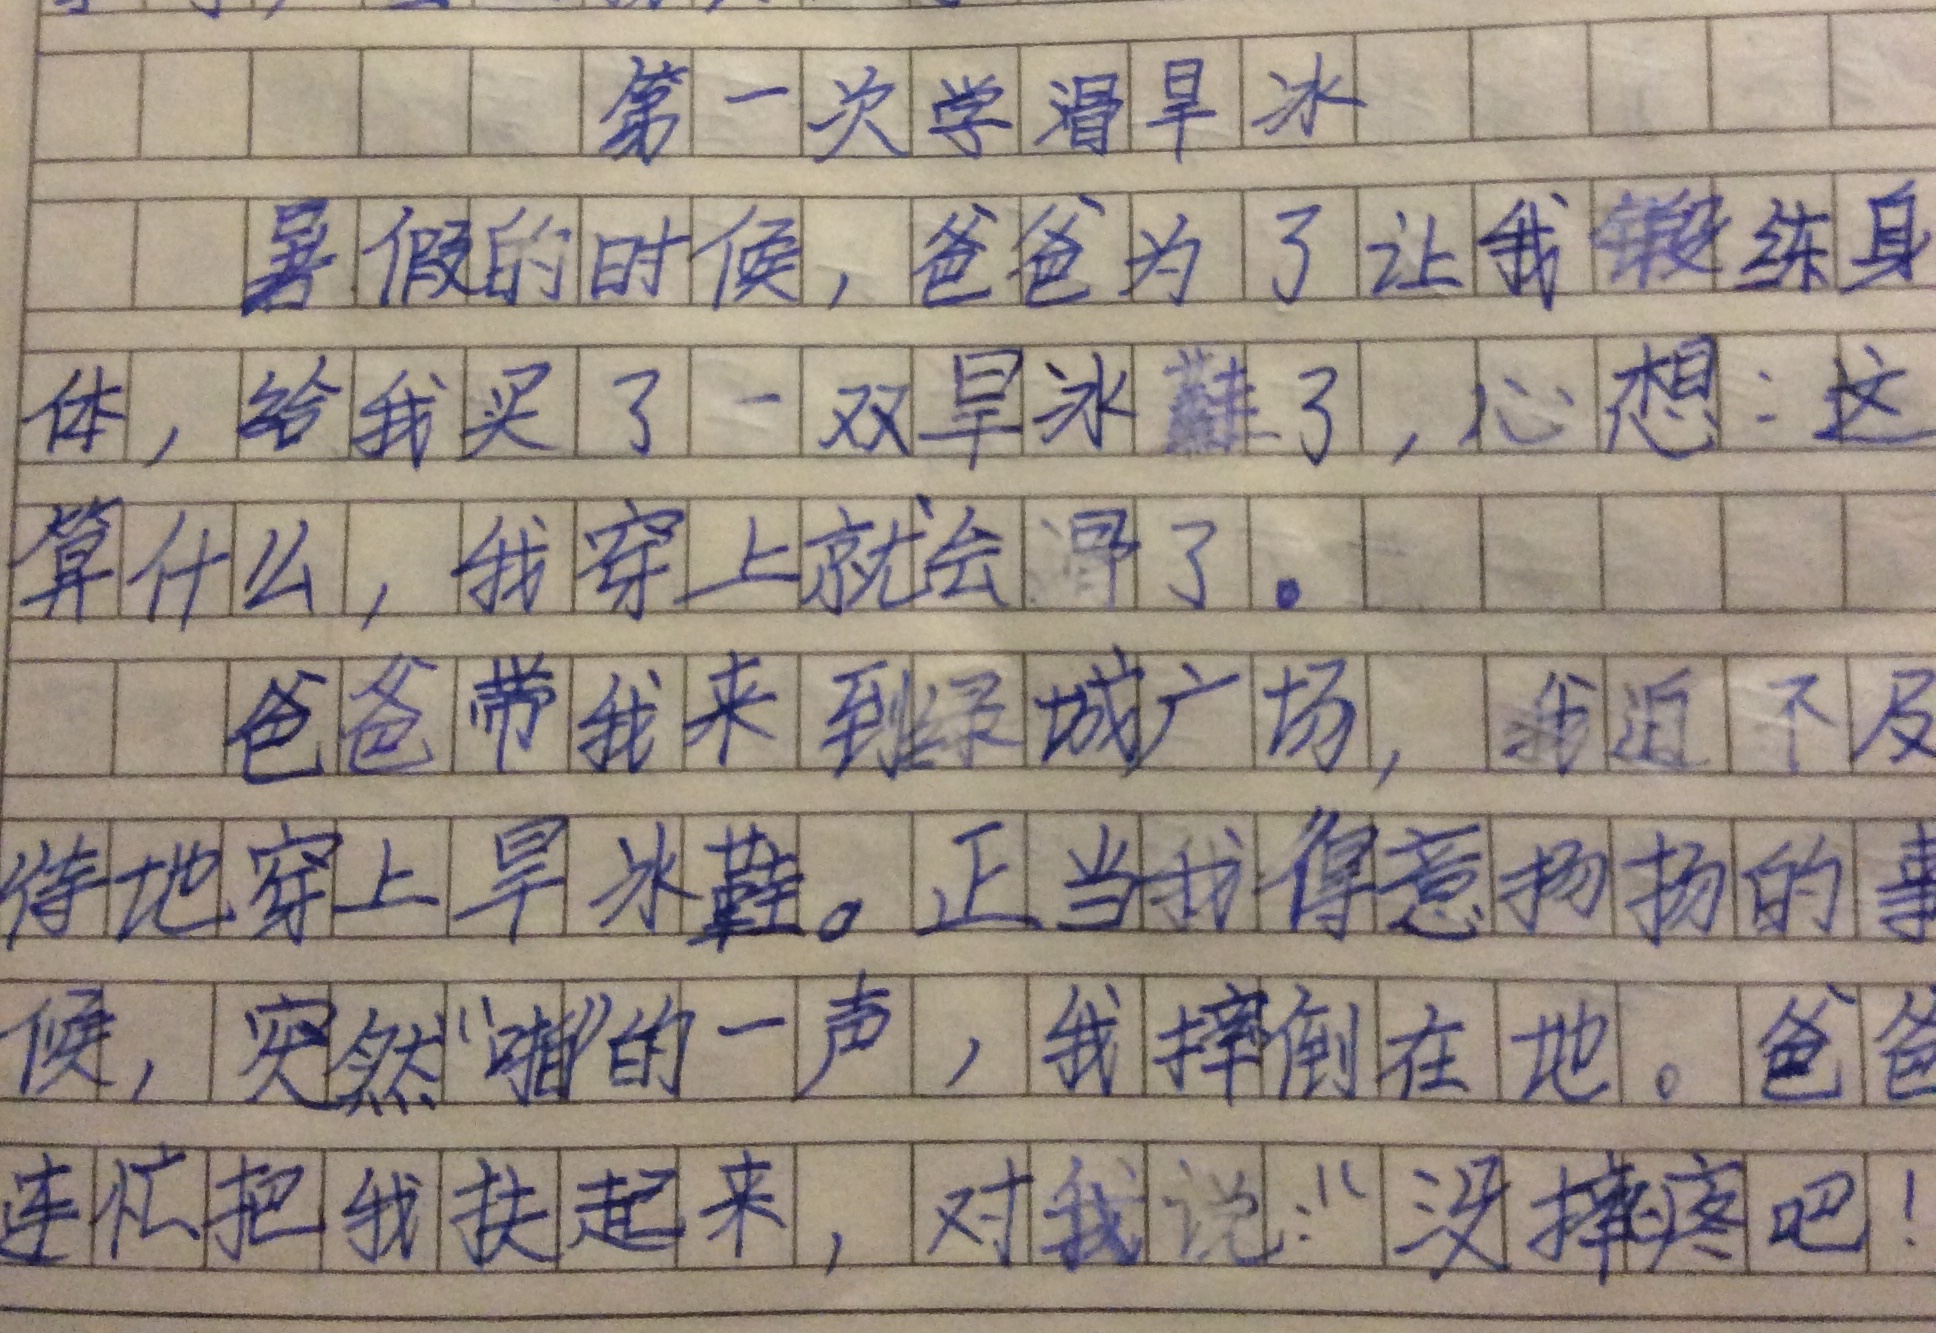 第一次学滑旱冰
暑假的时候，爸爸为了让我锻练身
体，给我买了一双旱冰鞋了，心想：这
算什么，我穿上就会滑了。
爸爸带我来到绿城广场，我迫不及
待地穿上旱冰鞋。正当我得意扬扬的事
候，突然“啪”的一声，我摔倒在地。爸爸
连忙把我扶起来，对我说：“没摔疼吧！